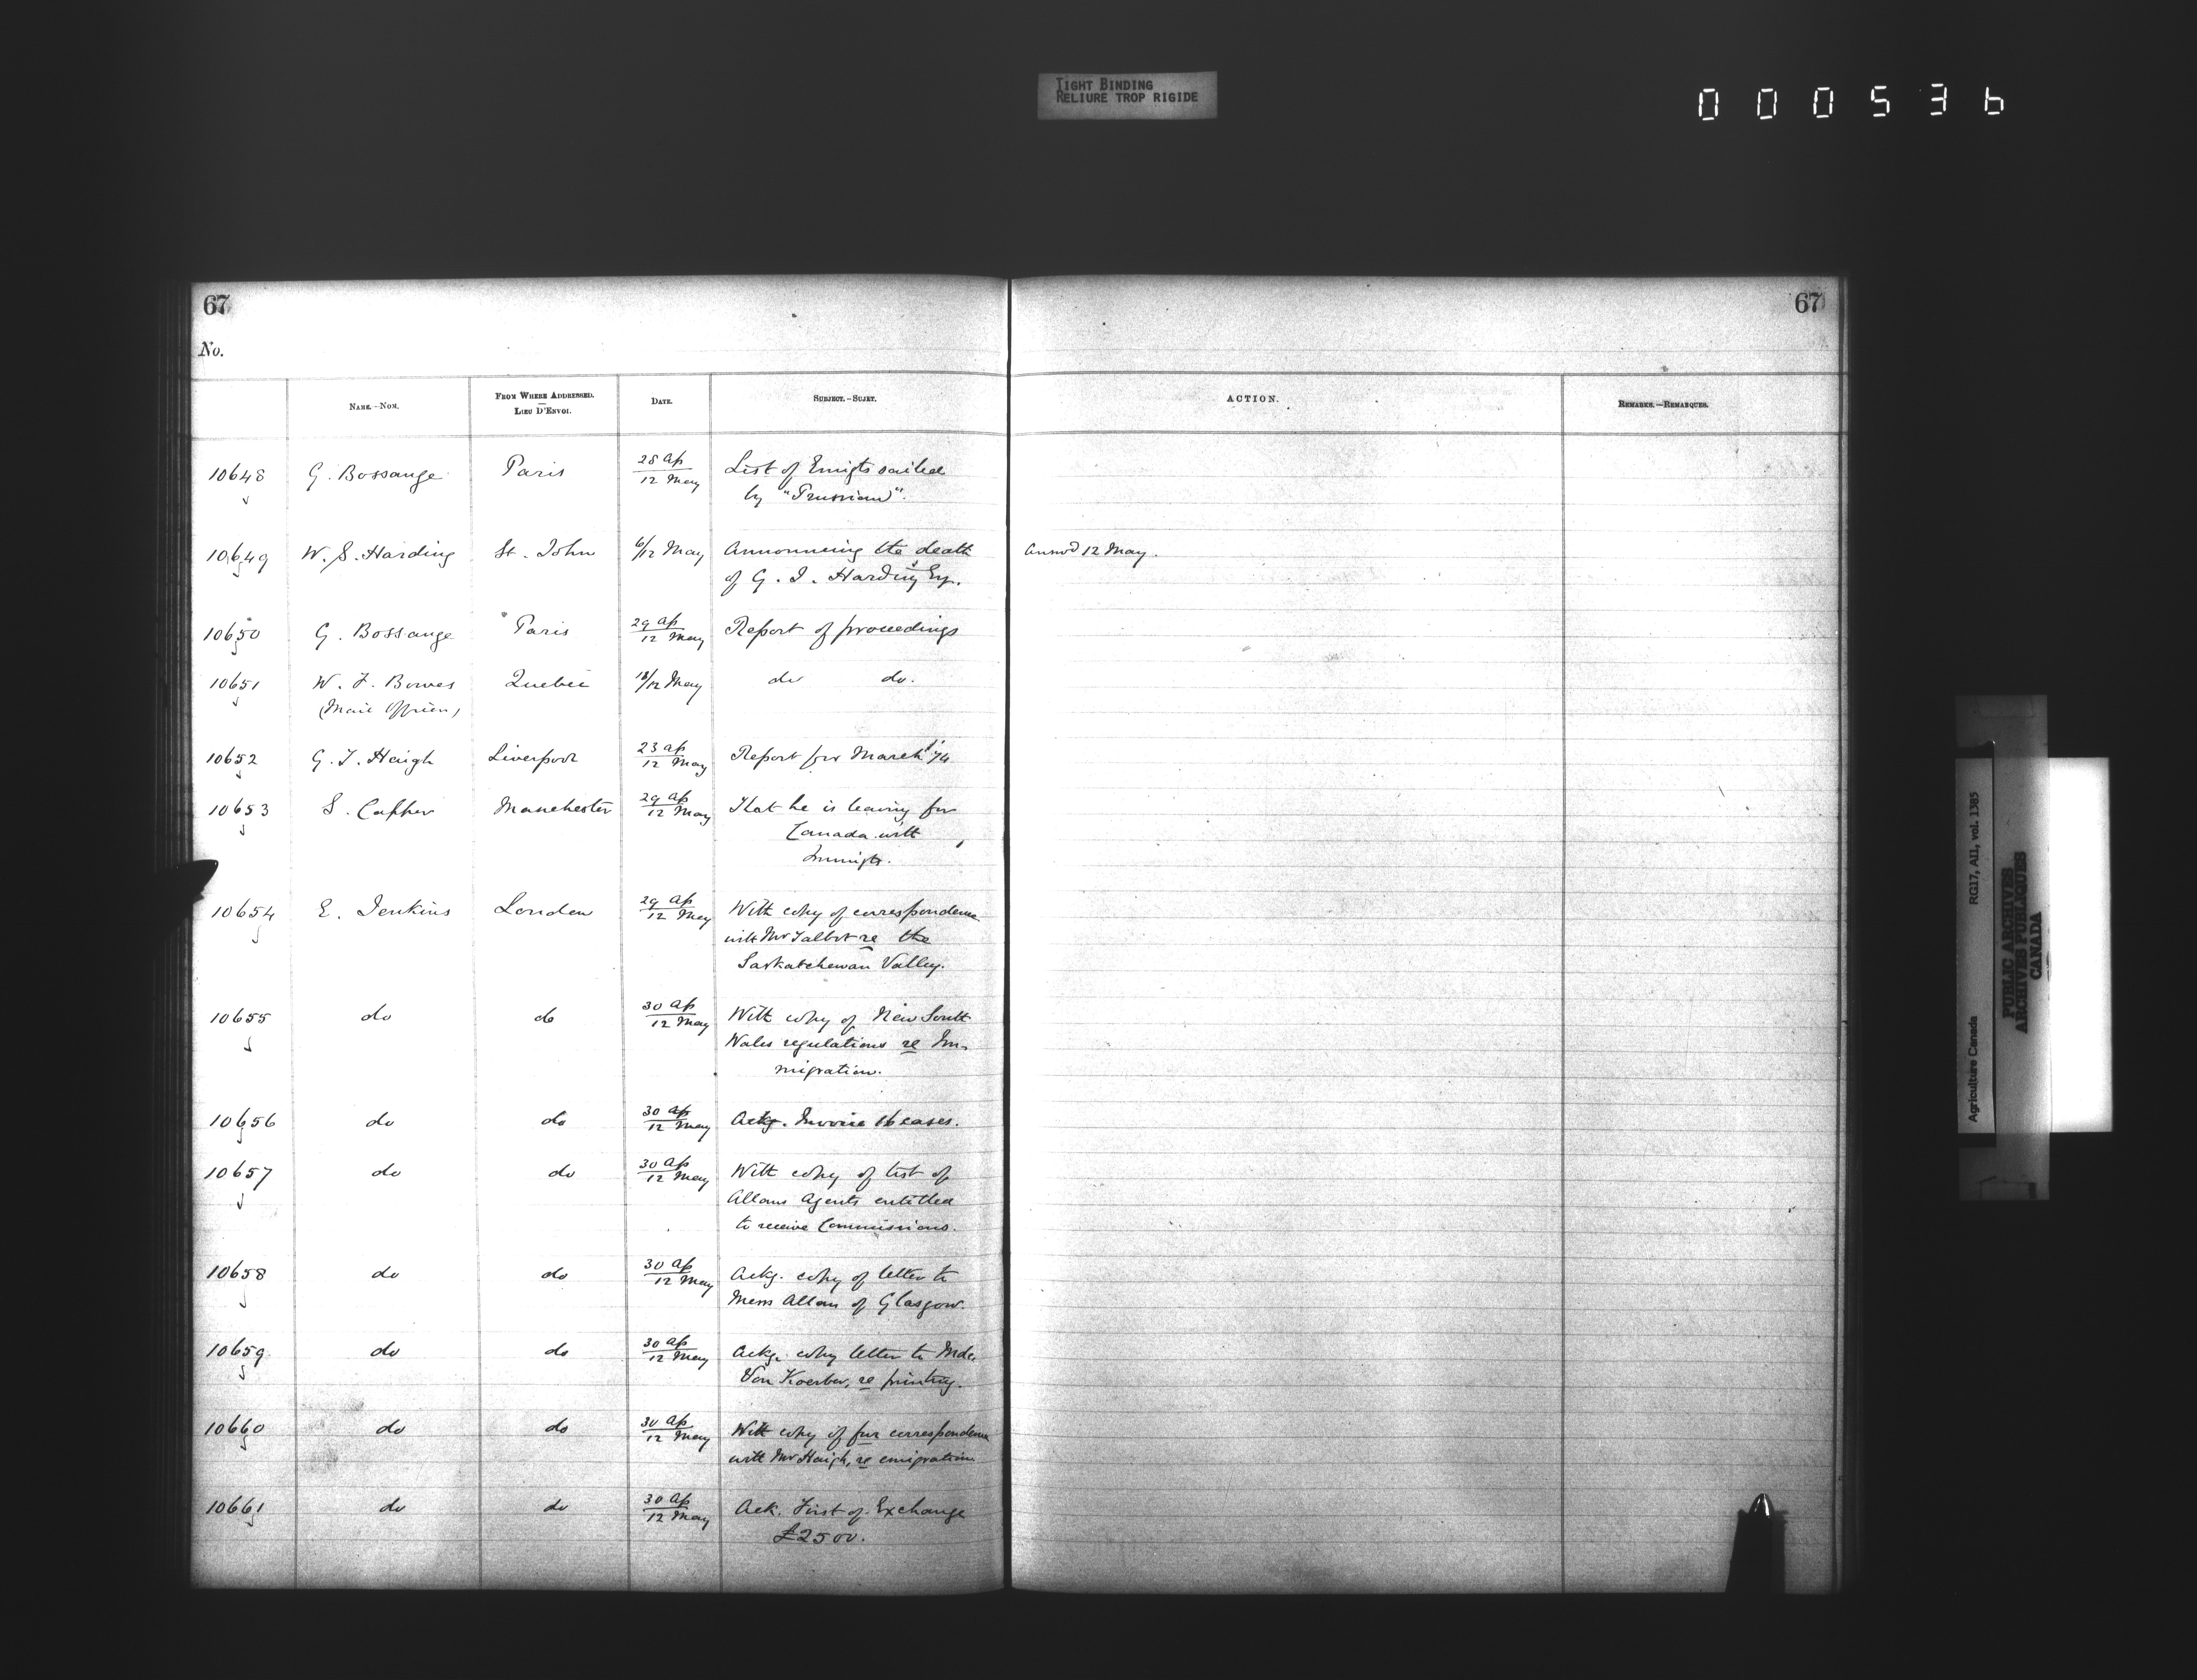 TIGHT BINDING
RELIURE TROP RIGIDE
000536
67 67
No.
NAME.-NOM. FROM WHERE ADDRESSED. LIEU D'ENVOI. DATE. SUBJECT.-SUJET. ACTION. REMARKS.-REMARQUES.
10648 G. Bossange Paris 28 Ap/12 May List of Emigts sailed
by "Prussian".
10649 W. S. Harding St. John 6/12 May Announcing the death Answd 12 May.
of G. J. Harding Esq.
10650 G. Bossange Paris 29 Ap/12 May Report of proceedings
10651 W. F. Bowes Quebec /12 May do do.
(Mail Officer)
10652 G. T. Haigh Liverpool 23 Ap/12 May Report for March '74
10653 S. Capper Manchester 29 Ap/12 May That he is leaving for
Canada with
Immigts.
10654 E. Jenkins London 29 Ap/12 May With copy of correspondence
with Mr Talbot re the
Saskatchewan Valley.
10655 do do 30 Ap/12 May With copy of New South
Wales regulations re Im-
migration.
10656 do do 30 Ap/12 May Ackg. Invoice 16 cases.
10657 do do 30 Ap/12 May With copy of list of
Allans Agents entitled
to receive Commissions.
10658 do do 30 Ap/12 May Ackg. copy of letter to
Mess Allan of Glasgow.
10659 do do 30 Ap/12 May Ackg. copy letter to Mde.
Von Koerber, re printing.
10660 do do 30 Ap/12 May With copy of fur correspondence
with Mr Haigh, re emigration
10661 do do 30 Ap/12 May Ack. First of Exchange
£2500.
Agriculture Canada RG17, AII, vol. 1385
PUBLIC ARCHIVES
ARCHIVES PUBLIQUES
CANADA